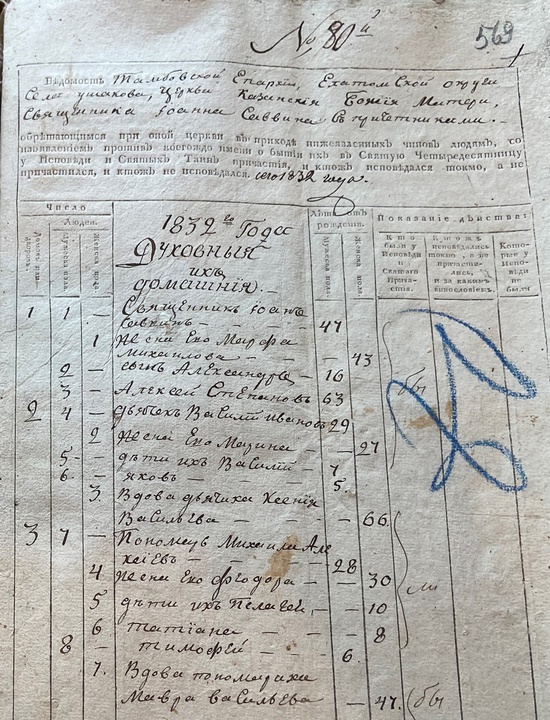 № 80й
569
Ведомость Тамбовской Епархіи, Елатомской округи
Села ушакова, Церкви Казанскія Божія Матери,
Священника Іоанна Саввина съ причетниками.
обрѣтающимся при оной церкви въ приходѣ нижеявленныхъ чиновъ людямъ, со
изъявленіемъ противъ коегождо имени о бытіи ихъ въ Святую Четыредесятницу
у Исповѣди и Святыхъ Таинъ причастія, и ктожъ исповѣдался токмо, а не
причастился, и ктожъ не исповѣдался. сего 1832 года.
Число
Людей.
Мужеска пола
Женска пола
1832го Года
Духовныя
ихъ
домашнія.
Лѣта отъ
рожденія.
Мужеска пола
Женска пола
Показаніе дѣйства:
Кто были у Исповѣди и Святаго Причастія.
Ктожъ исповѣдались токмо, а не причастились, и за какимъ винословіемъ.
Которые у Исповѣди не были
1 1 — Священникъ Іоанъ
Саввинъ — — 47
1 Жена Его Марфа
михаилова — — 43
2 — сынъ Александръ — 16
3 — Алексей Степановъ 63
2 4 — дьячекъ Василій Ивановъ 29
2 Жена Его — 27
5 — дѣти ихъ Василій — 7
6 — яковъ — 5.
3. Вдова дьячиха Ксенія
Васильева — — — 66.
3 7 — Пономарь Михаила Але
ксіевъ — — — 28
4 Жена Его Ѳеодора — — 30
5 дѣти ихъ Пелагея, — 10
6 татіана — — — 8
8 — тимофей — — 6.
7. Вдова пономариха
Мавра васильева — 47.
бы
ли
бы